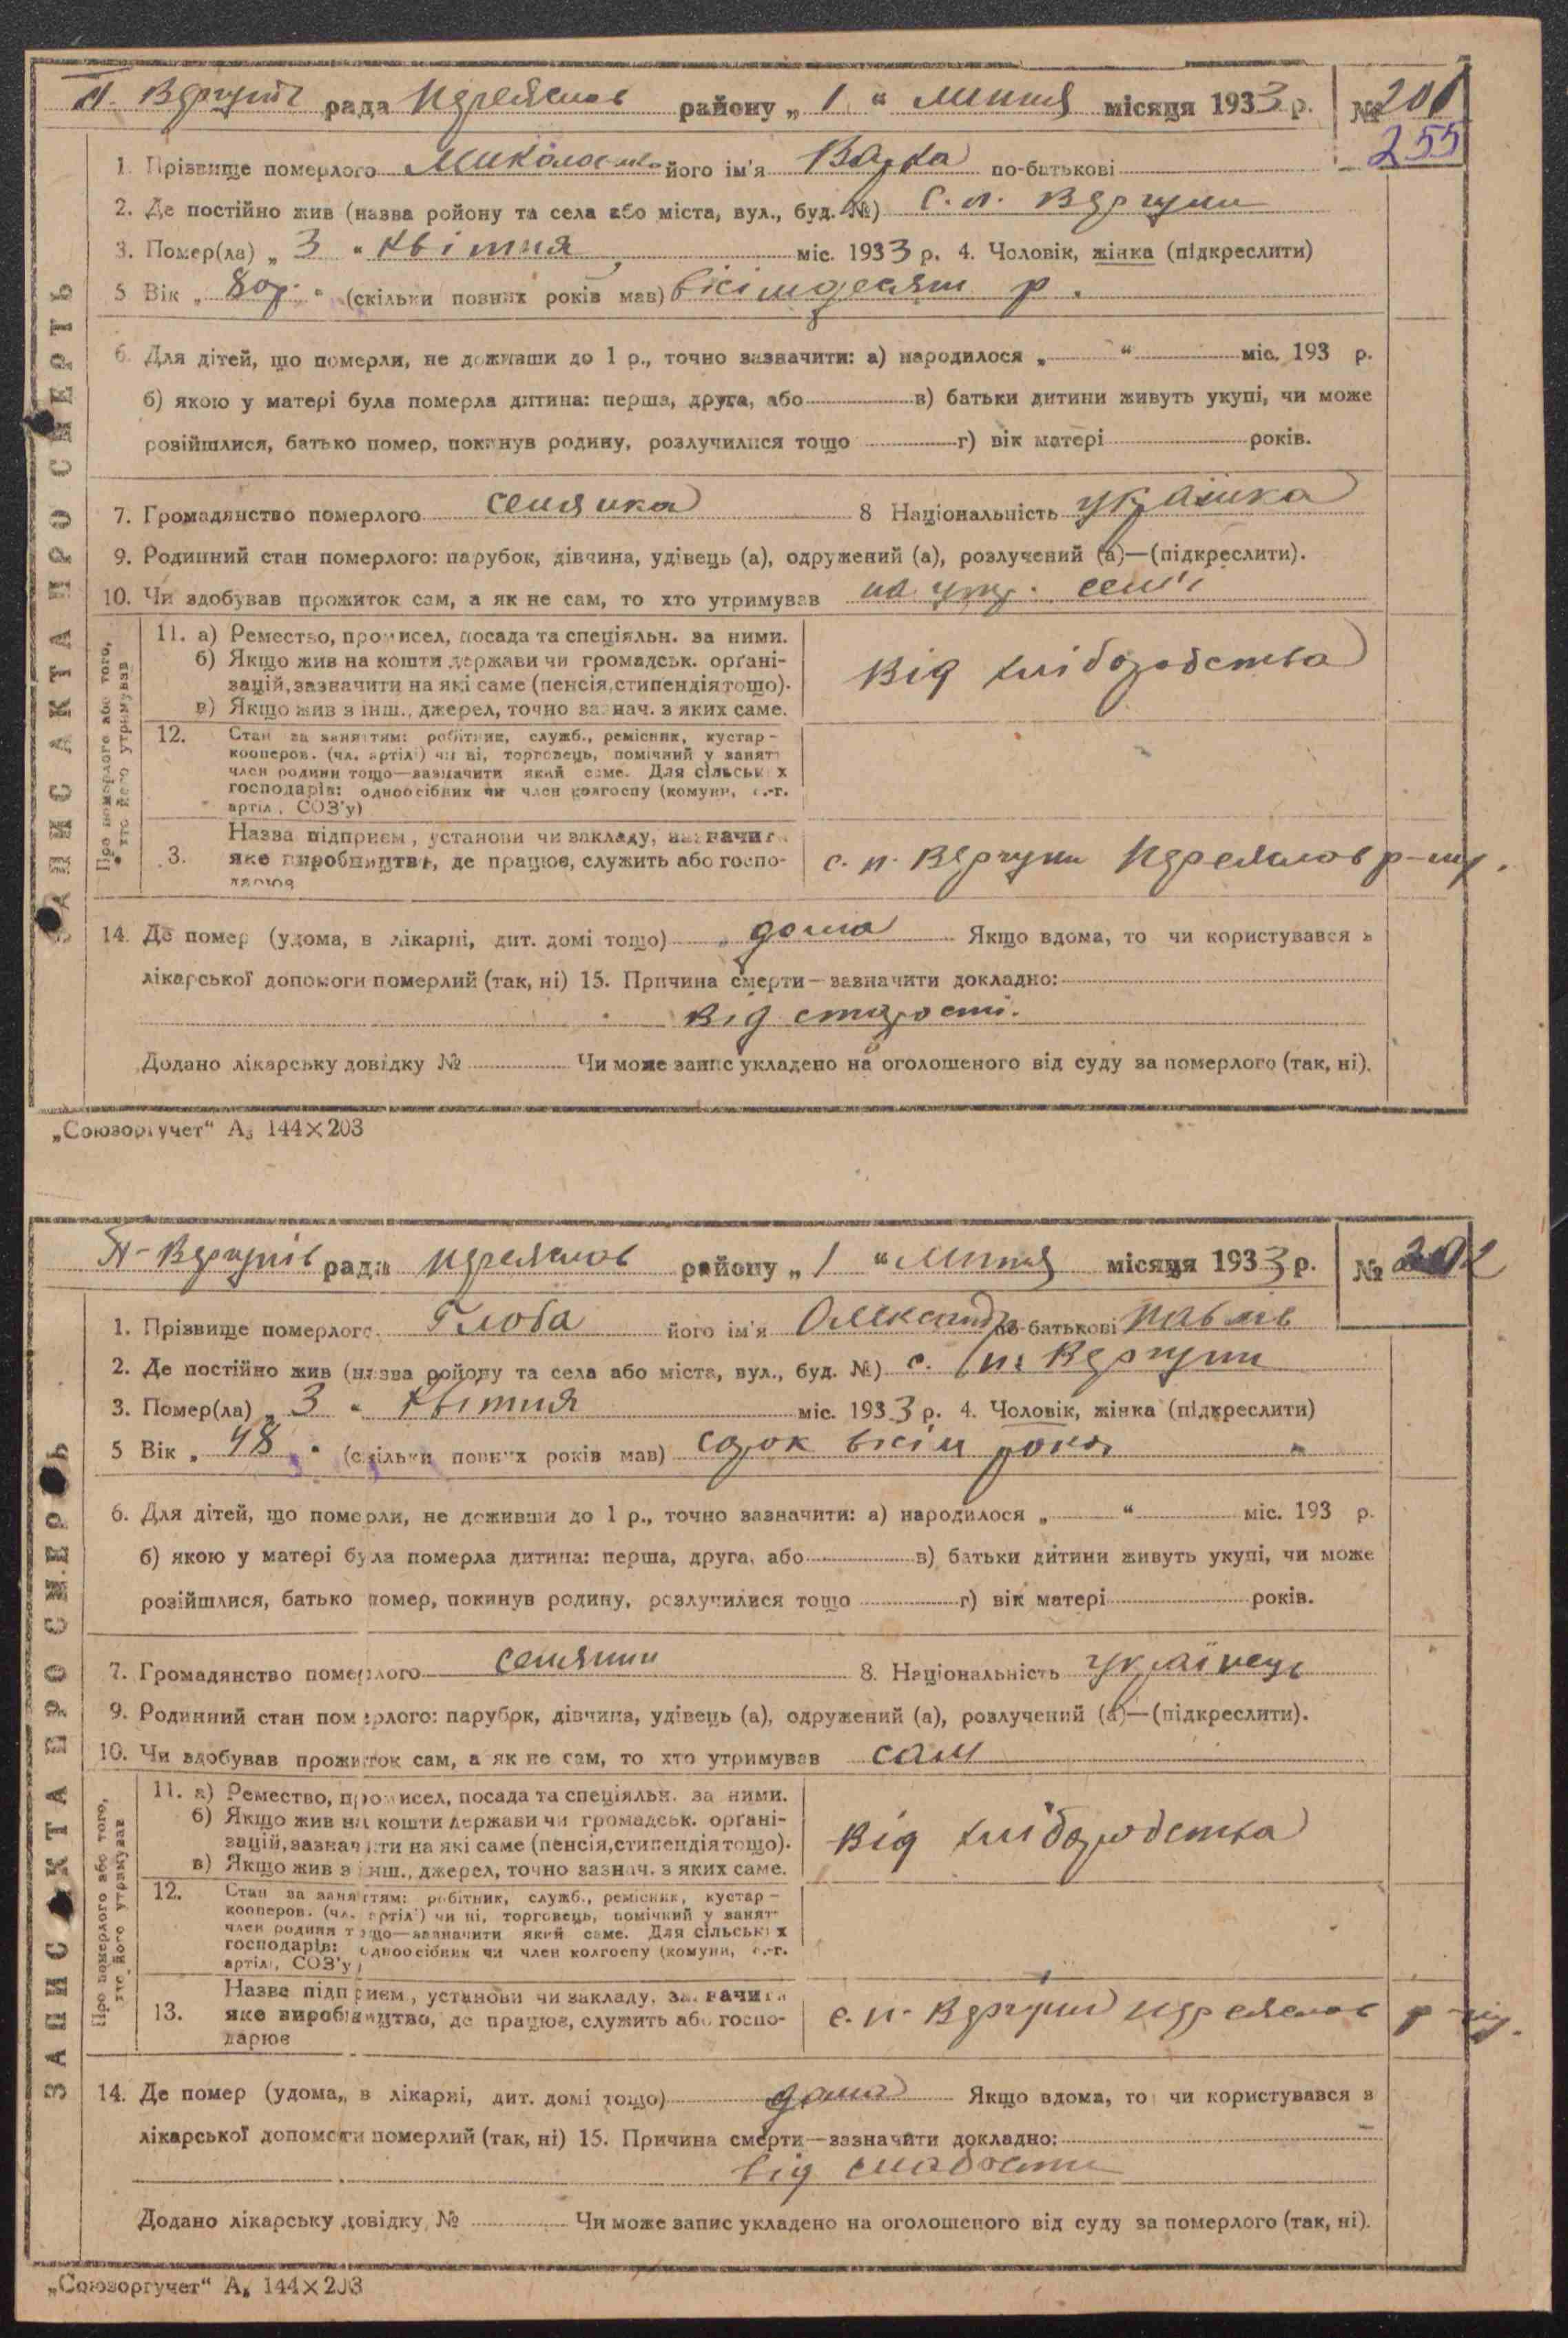 П. Вергуні рада Переяслов району „ 1 “ липня місяця 1933 р. № 201
255
1. Прізвище померлого його ім'я Варка по-батькові
2. Де постійно жив (назва ройону та села або міста, вул., буд. №) с. п. Вергуни
3. Помер(ла) „ 3 “ квітня міс. 1933 р. 4. Чоловік, жінка (підкреслити)
5 Вік „ 80 р. “ (скільки повних років мав) вісімдесят р.
6. Для дітей, що померли, не доживши до 1 р., точно зазначити: а) народилося „ “ міс. 193 р.
б) якою у матері була померла дитина: перша, друга, або в) батьки дитини живуть укупі, чи може
розійшлися, батько помер, покинув родину, розлучилися тощо г) вік матері років.
7. Громадянство померлого селянка 8 Національність українка
9. Родинний стан померлого: парубок, дівчина, удівець (а), одружений (а), розлучений (а)—(підкреслити).
10. Чи здобував прожиток сам, а як не сам, то хто утримував на утр. сем'ї
ЗАПИС АКТА ПРО СМЕРТЬ
Про померлого або того, хто його утримував
11. а) Ремество, промисел, посада та спеціяльн. за ними.
б) Якщо жив на кошти держави чи громадськ. органі-
зацій, зазначити на які саме (пенсія, стипендія тощо).
в) Якщо жив з інш., джерел, точно зазнач. з яких саме.
Від хліборобства
12. Стан за заняттям: робітник, служб., ремісник, кустар-
кооперов. (чл. артіл.) чи ні, торговець, помічний у занят.
член родини тощо—зазначити який саме. Для сільських
господарів: одноосібник чи член колгоспу (комуни, с.-г.
артіл., СОЗ'у)
3. Назва підприєм, установи чи закладу, зазначити
яке виробництво, де працює, служить або госпо-
дарює
с. п. Вергуни Переяслов р-ну.
14. Де помер (удома, в лікарні, дит. домі тощо) дома Якщо вдома, то чи користувався з
лікарської допомоги померлий (так, ні) 15. Причина смерти—зазначити докладно:
Від старості.
Додано лікарську довідку № Чи може запис укладено на оголошеного від суду за померлого (так, ні).
„Союзоргучет“ А₅ 144×203
П-Вергунів рада Переяслов району „ 1 “ липня місяця 1933 р. № 202
1. Прізвище померлого Глоба його ім'я Олександр по-батькові Павлів
2. Де постійно жив (назва ройону та села або міста, вул., буд. №) с. п. Вергуни
3. Помер(ла) „ 3 “ квітня міс. 1933 р. 4. Чоловік, жінка (підкреслити)
5 Вік „ 48 “ (скільки повних років мав) сорок вісім років
6. Для дітей, що померли, не доживши до 1 р., точно зазначити: а) народилося „ “ міс. 193 р.
б) якою у матері була померла дитина: перша, друга, або в) батьки дитини живуть укупі, чи може
розійшлися, батько помер, покинув родину, розлучилися тощо г) вік матері років.
7. Громадянство померлого селянин 8. Національність українець
9. Родинний стан померлого: парубок, дівчина, удівець (а), одружений (а), розлучений (а)—(підкреслити).
10. Чи здобував прожиток сам, а як не сам, то хто утримував сам
ЗАПИС АКТА ПРО СМЕРТЬ
Про померлого або того, хто його утримував
11. а) Ремество, промисел, посада та спеціяльн. за ними.
б) Якщо жив на кошти держави чи громадськ. органі-
зацій, зазначити на які саме (пенсія, стипендія тощо).
в) Якщо жив з інш., джерел, точно зазнач. з яких саме.
Від хліборобства
12. Стан за заняттям: робітник, служб., ремісник, кустар-
кооперов. (чл. артіл.) чи ні, торговець, помічний у занят.
член родини тощо—зазначити який саме. Для сільських
господарів: одноосібник чи член колгоспу (комуни, с.-г.
артіл., СОЗ'у)
13. Назва підприєм, установи чи закладу, зазначити
яке виробництво, де працює, служить або госпо-
дарює
с. п. Вергуни Переяслов р-ну.
14. Де помер (удома, в лікарні, дит. домі тощо) дома Якщо вдома, то чи користувався з
лікарської допомоги померлий (так, ні) 15. Причина смерти—зазначити докладно:
від слабости
Додано лікарську довідку № Чи може запис укладено на оголошеного від суду за померлого (так, ні).
„Союзоргучет“ А₅ 144×203